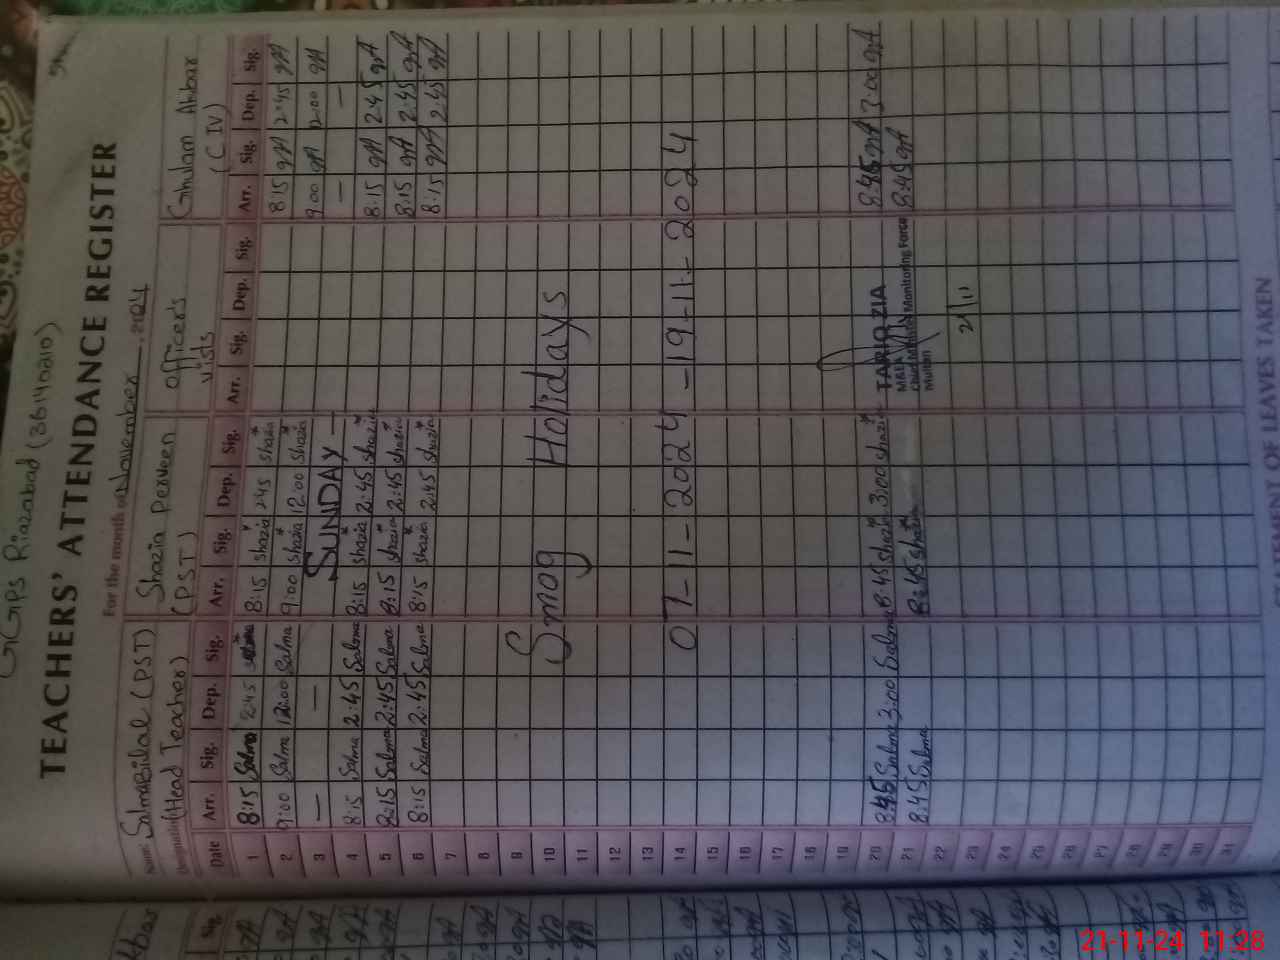 GGPS Riazabad (36140210)
TEACHERS' ATTENDANCE REGISTER
For the month of November 2024
Name: Salma Bilal (PST) Shazia Perveen officer's Ghulam Akbar
Designation (Head Teacher) (PST) vists (C IV)
Date Arr. Sig. Dep. Sig. Arr. Sig. Dep. Sig. Arr. Sig. Dep. Sig. Arr. Sig. Dep. Sig.
1 8:15 Salma 2:45 Salma 8:15 Shazia 2:45 Shazia 8:15 gA 2:45 gA
2 9:00 Salma 12:00 Salma 9:00 Shazia 12:00 Shazia 9:00 gA 12:00 gA
3 — — SUNDAY — — —
4 8:15 Salma 2:45 Salma 8:15 Shazia 2:45 Shazia 8:15 gA 2:45 gA
5 8:15 Salma 2:45 Salma 8:15 Shazia 2:45 Shazia 8:15 gA 2:45 gA
6 8:15 Salma 2:45 Salma 8:15 Shazia 2:45 Shazia 8:15 gA 2:45 gA
7
8
9
10 Smog Holidays
11
12
13
14 07-11-2024 - 19-11-2024
15
16
17
18
19
20 8:45 Salma 3:00 Salma 8:45 Shazia 3:00 Shazia TARIQ ZIA 8:45 gA 3:00 gA
21 8:45 Salma 8:45 Shazia MEA Chief Minister Monitoring Force Multan 8:45 gA
22
23 21/11
24
25
26
27
28
29
30
31
STATEMENT OF LEAVES TAKEN
Akbar
Sig.
21-11-24 11:28